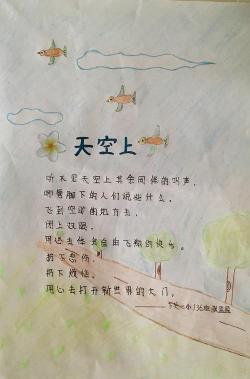 天空上
听不见天空上其余同伴的叫声，
哪管脚下的人们说些什么，
飞到空旷的地方去，
闭上双眼，
用心去体会自由飞翔的快乐。
抛下忽伤，
抛下烦恼，
用心去打开新世界的大门。
小136班